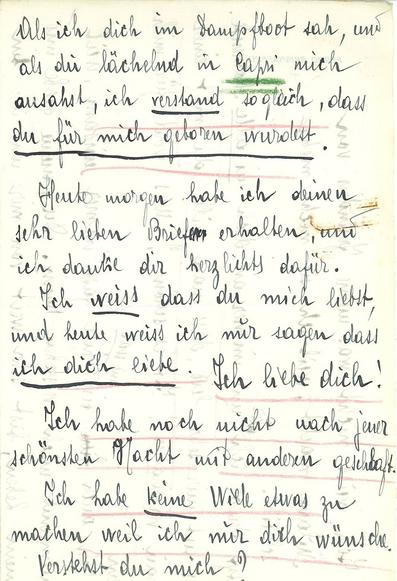 Als ich dich im Dampfboot sah, und
als du lächelnd in Capri mich
ansahst, ich verstand sogleich, dass
du für mich geboren wurdest.
Heute morgen habe ich deinen
sehr lieben Brief erhalten, und
ich danke dir herzlichts dafür.
Ich weiss dass du mich liebst,
und heute weiss ich nur sagen dass
ich dich liebe. Ich liebe dich!
Ich habe noch nicht nach jener
schönsten Nacht mit anderen geschlaft.
Ich habe keine Wiele etwas zu
machen weil ich nur dich wünsche.
Verstehst du mich?